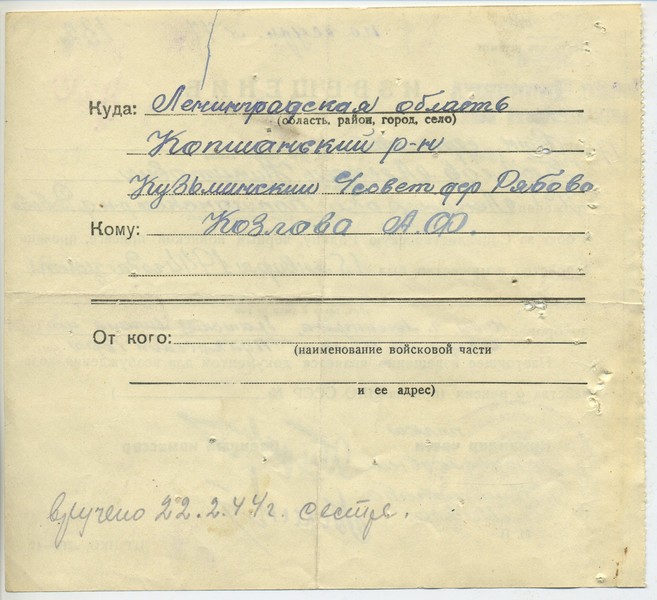 Куда: Ленинградская область
(область, район, город, село)
Капшанский р-н
Кузьминский Чсовет дер Рябово
Кому: Козлова А.Ф.
От кого:
(наименование войсковой части
и ее адрес)
вручено 22.2.44г. сестре.